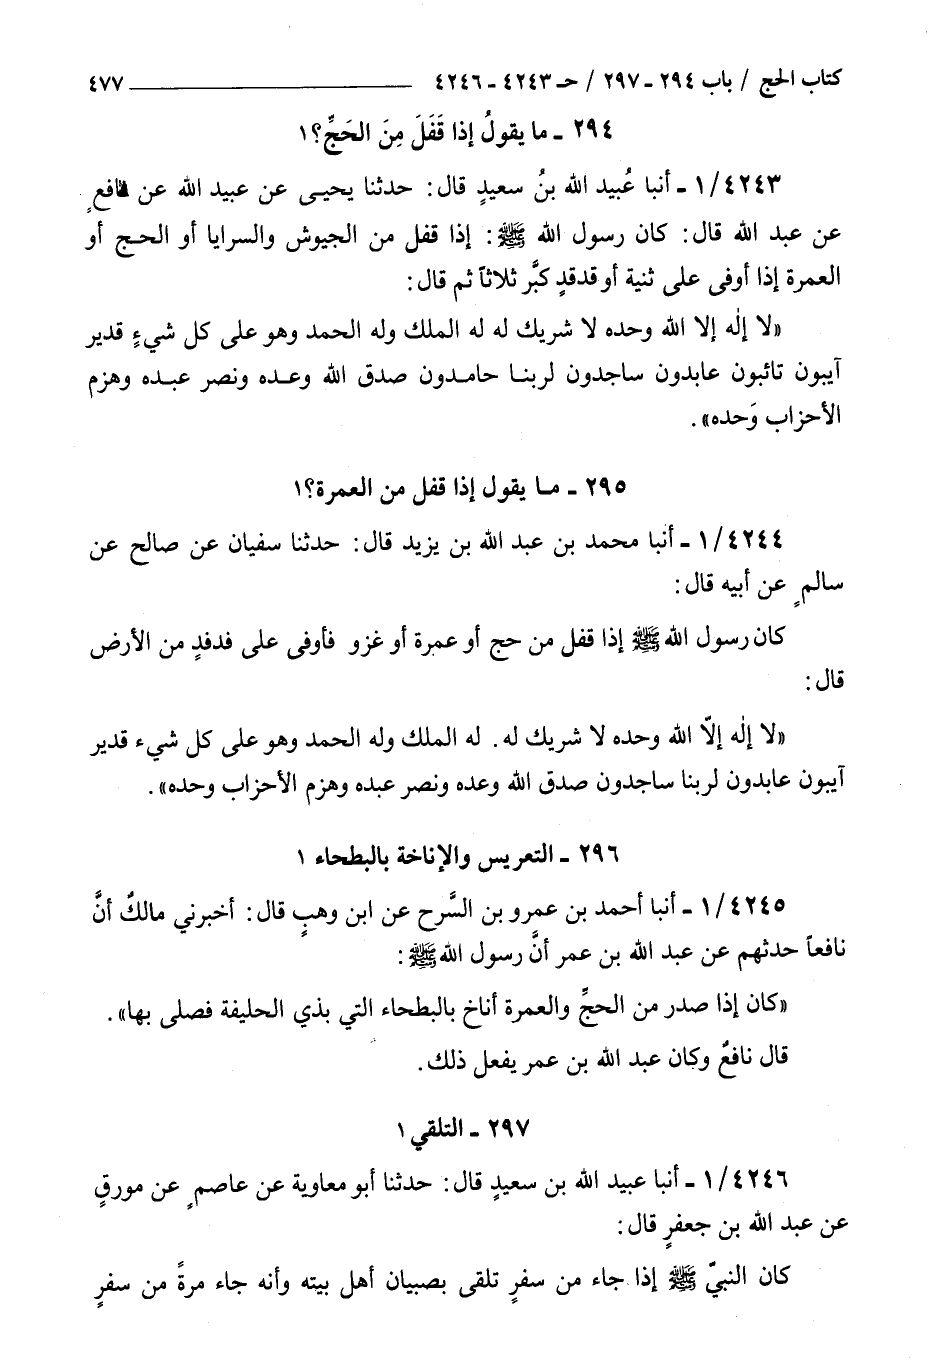 كتاب الحج / باب ٢٩٤ - ٢٩٧ / حـ ٤٢٤٣ - ٤٢٤٦ ٤٧٧
٢٩٤ - ما يقولُ إذا قَفَلَ مِنَ الحَجِّ؟١
١/٤٢٤٣ - أنبا عُبيد الله بنُ سعيدٍ قال: حدثنا يحيى عن عبيد الله عن نافعٍ
عن عبد الله قال: كان رسول الله ﷺ: إذا قفل من الجيوش والسرايا أو الحج أو
العمرة إذا أوفى على ثنية أو قدقدٍ كبَّر ثلاثاً ثم قال:
«لا إلٰه إلا الله وحده لا شريك له له الملك وله الحمد وهو على كل شيءٍ قدير
آيبون تائبون عابدون ساجدون لربنا حامدون صدق الله وعده ونصر عبده وهزم
الأحزاب وَحده».
٢٩٥ - ما يقول إذا قفل من العمرة؟١
١/٤٢٤٤ - أنبا محمد بن عبد الله بن يزيد قال: حدثنا سفيان عن صالح عن
سالمٍ عن أبيه قال:
كان رسول الله ﷺ إذا قفل من حج أو عمرة أو غزو فأوفى على فدفدٍ من الأرض
قال:
«لا إلٰه إلّا الله وحده لا شريك له. له الملك وله الحمد وهو على كل شيء قدير
آيبون عابدون لربنا ساجدون صدق الله وعده ونصر عبده وهزم الأحزاب وحده».
٢٩٦ - التعريس والإناخة بالبطحاء ١
١/٤٢٤٥ - أنبا أحمد بن عمرو بن السَّرح عن ابن وهبٍ قال: أخبرني مالكٌ أنَّ
نافعاً حدثهم عن عبد الله بن عمر أنَّ رسول الله ﷺ:
«كان إذا صدر من الحجِّ والعمرة أناخ بالبطحاء التي بذي الحليفة فصلى بها».
قال نافعٌ وكان عبد الله بن عمر يفعل ذلك.
٢٩٧ - التلقي ١
١/٤٢٤٦ - أنبا عبيد الله بن سعيدٍ قال: حدثنا أبو معاوية عن عاصمٍ عن مورقٍ
عن عبد الله بن جعفرٍ قال:
كان النبيّ ﷺ إذا جاء من سفرٍ تلقى بصبيان أهل بيته وأنه جاء مرةً من سفرٍ